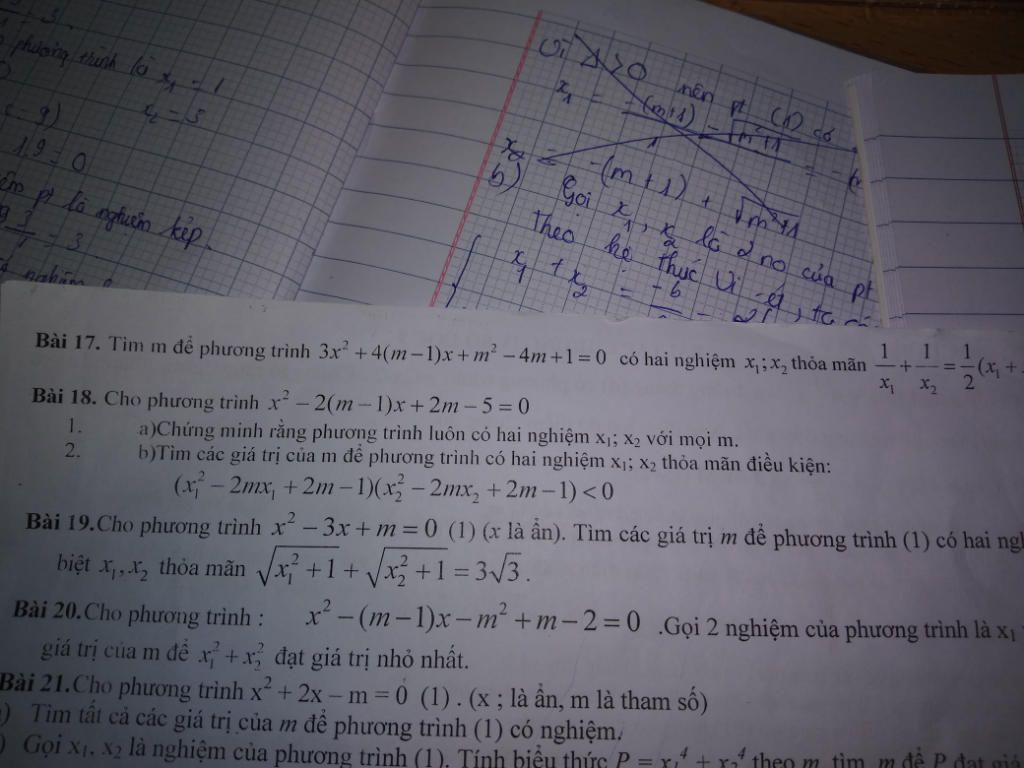 phương trình là x₁ = 1
x₂ = 5
1.9 = 0
pt là nghiệm kép.
= 3
Vì Δ > 0 nên pt (1) có
x₁ = -(m+1) - √m²+1
x₂ = -(m+1) + √m²+1
b) Gọi x₁, x₂ là 2 no của pt
Theo hệ thức Vi-ét, ta có
x₁ + x₂ = -b
Bài 17. Tìm m để phương trình 3x² + 4(m−1)x + m² − 4m + 1 = 0 có hai nghiệm x₁; x₂ thỏa mãn 1/x₁ + 1/x₂ = 1/2 (x₁ +
Bài 18. Cho phương trình x² − 2(m−1)x + 2m − 5 = 0
1. a)Chứng minh rằng phương trình luôn có hai nghiệm x₁; x₂ với mọi m.
2. b)Tìm các giá trị của m để phương trình có hai nghiệm x₁; x₂ thỏa mãn điều kiện:
(x₁² − 2mx₁ + 2m − 1)(x₂² − 2mx₂ + 2m − 1) < 0
Bài 19.Cho phương trình x² − 3x + m = 0 (1) (x là ẩn). Tìm các giá trị m để phương trình (1) có hai
biệt x₁, x₂ thỏa mãn √(x₁² + 1) + √(x₂² + 1) = 3√3.
Bài 20.Cho phương trình : x² − (m−1)x − m² + m − 2 = 0 .Gọi 2 nghiệm của phương trình là x₁
giá trị của m để x₁² + x₂² đạt giá trị nhỏ nhất.
Bài 21.Cho phương trình x² + 2x − m = 0 (1) . (x ; là ẩn, m là tham số)
) Tìm tất cả các giá trị của m để phương trình (1) có nghiệm.
) Gọi x₁, x₂ là nghiệm của phương trình (1). Tính biểu thức P = x₁⁴ + x₂⁴ theo m, tìm m để P đạt giá